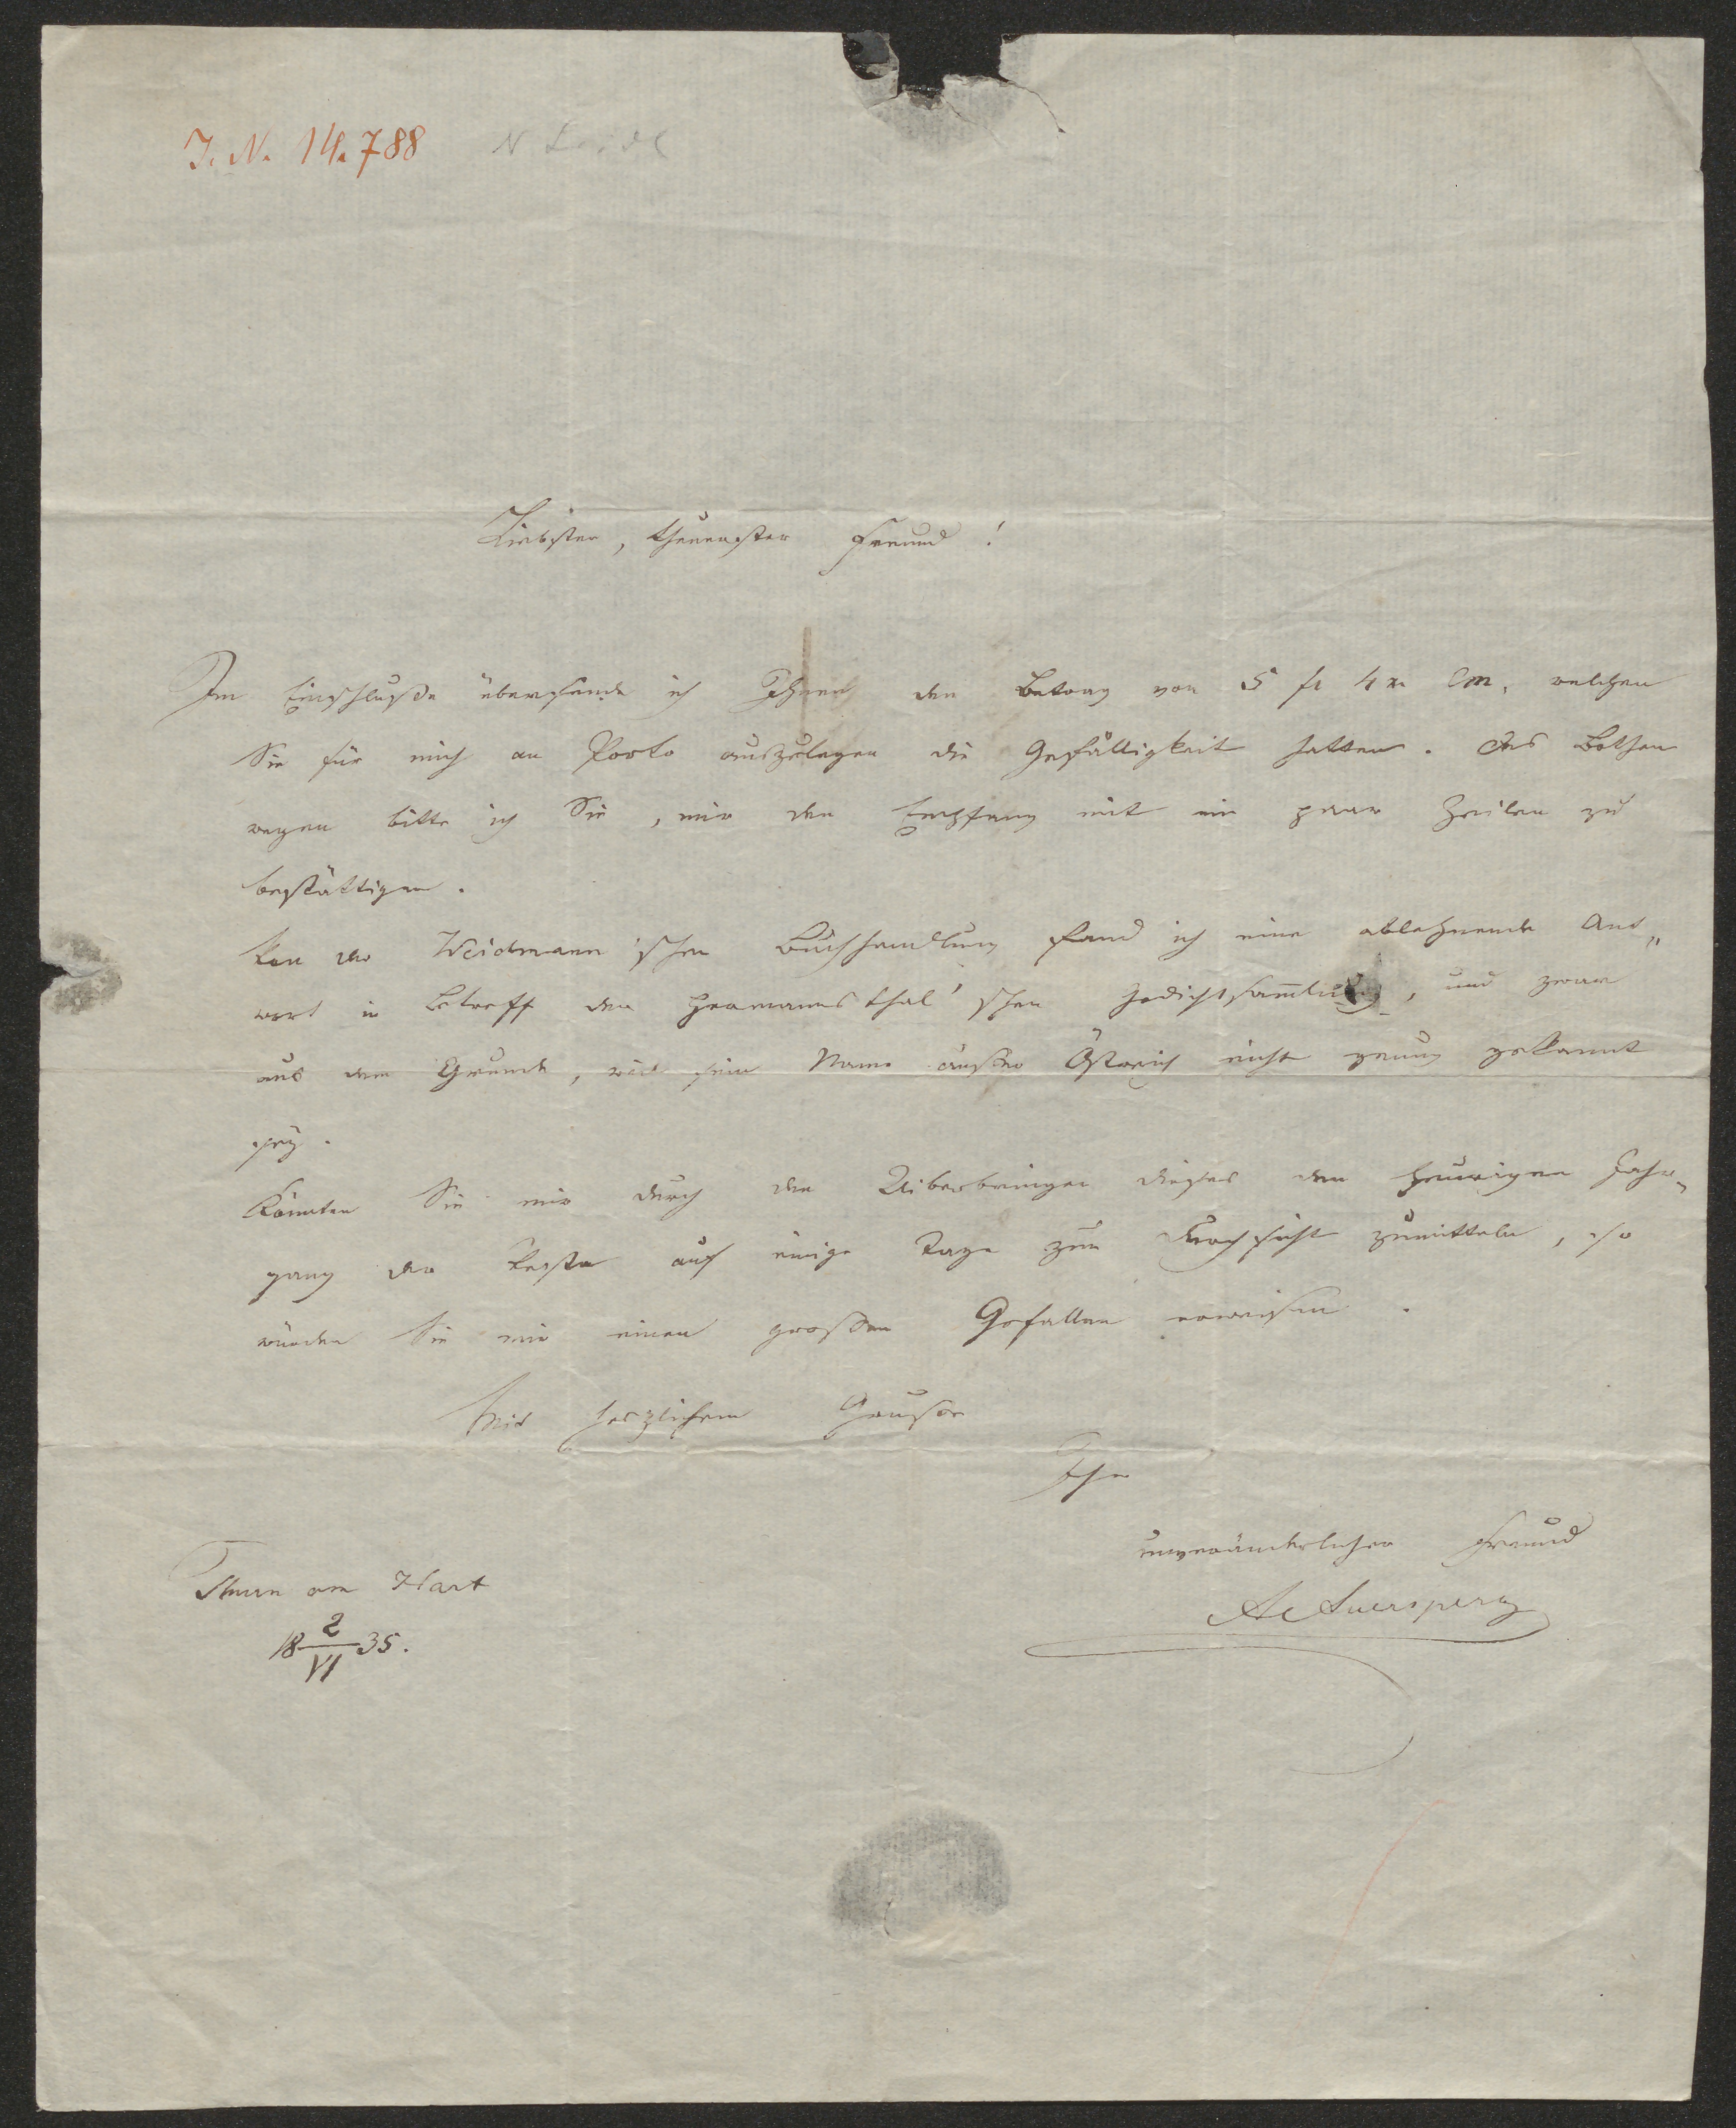 I. N. 14.788 N Seidl
Liebster, theuerster Freund!
Im Einschluße übersende ich Ihnen den Betrag von 5 fl 4 xr CM, welchen
Sie für mich an Porto auszulegen die Gefälligkeit hatten. Des Bothen
wegen bitte ich Sie, mir den Empfang mit ein paar Zeilen zu
bestättigen.
Von der Weidmann'schen Buchhandlung fand ich eine ablehnende Ant„
wort in Betreff der Hermannsthal'schen Gedichtsam̅lung, und zwar
aus dem Grunde, weil sein Name außer Östreich nicht genug gekannt
sey.
Könnten Sie mir durch den Uiberbringer dieses den heurigen Jahr„
gang der Vesta auf einige Tage zur Durchsicht zumitteln, so
würden Sie mir einen großen Gefallen erweisen.
Mit herzlichem Gruße
Ihr
unveränderlicher Freund
AAuersperg
Thurn am Hart
18 2/VI 35.